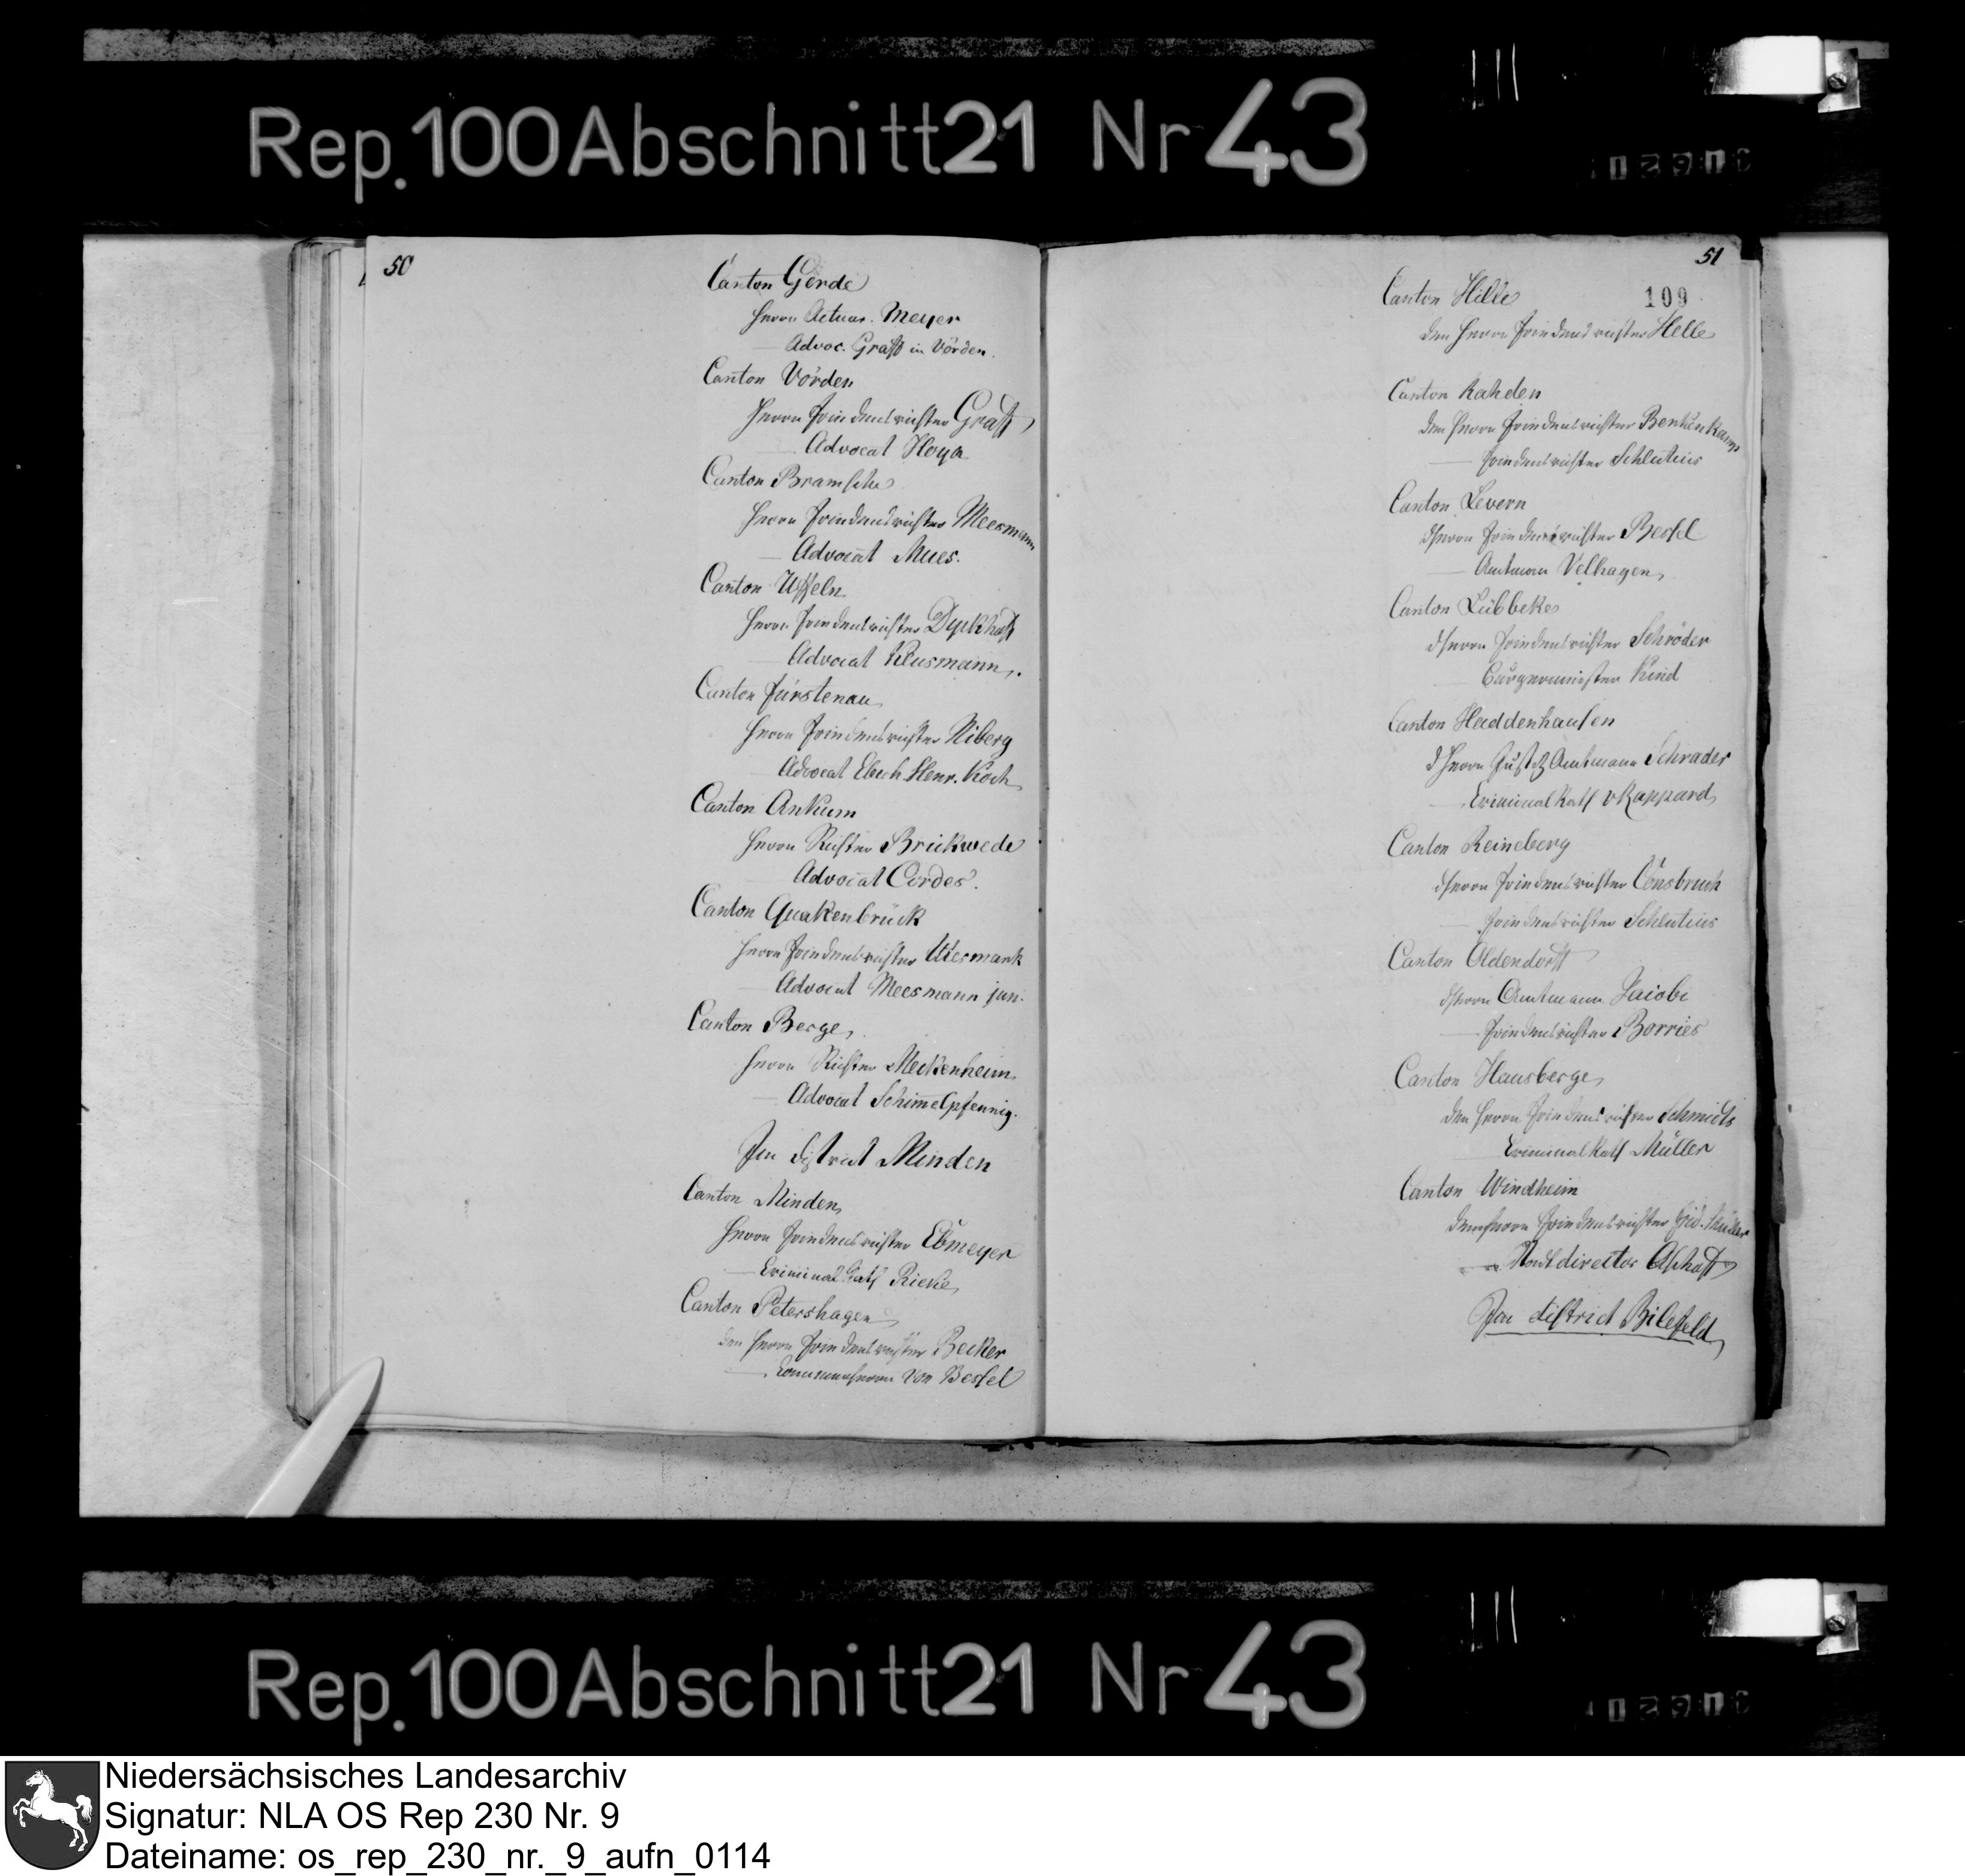 Rep. 100 Abschnitt 21 Nr 43
50
Canton Görde
Herrn Actuar. Meyer
— Advoc. Graff in Vörden.
Canton Vörden
Herrn Friedensrichter Graff
— Advocat Hoya
Canton Bramsche
Herrn Friedensrichter Meesmann
— Advocat Mues.
Canton Uffeln
Herrn Friedensrichter Dyckhoff
— Advocat Klusmann.
Canton Fürstenau
Herrn Friedensrichter Niberg
— Advocat Henr. Koch
Canton Ankum
Herrn Richter Brickwede
Advocat Cordes.
Canton Quakenbrück
Herrn Friedensrichter
— Advocat Meesmann jun.
Canton Berge
Herrn Richter Meckenheim
— Advocat Schimelpfennig.
Im District Minden
Canton Minden
Herrn Friedensrichter Ebmeyer
— Criminal Rath Rieke
Canton Petershagen
den Herrn Friedensrichter Becker
— von Bessel
51
109
Canton Hille
den Herrn Friedensrichter Helle
Canton Rahden
den Herrn Friedensrichter Benkenkamp
— Friedensrichter Schlutius
Canton Levern
d Herrn Friedensrichter Bessel
— Amtmann Velhagen
Canton Lübbeke
d Herrn Friedensrichter Schröder
— Burgermeister Kind
Canton Haddenhausen
d Herrn Justiz Amtmann Schrader
— Criminal Rath v Rappard
Canton Reineberg
d Herrn Friedensrichter Consbruch
— Friedensrichter Schlutius
Canton Oldendorff
d Herrn Amtmann Jacobi
— Friedensrichter Borries
Canton Hausberge
den Herrn Friedensrichter Schmidts
Criminal Rath Müller
Canton Windheim
den Herrn Friedensrichter
— Stadtdirector Aschoff
Im district Bilefeld
Rep. 100 Abschnitt 21 Nr 43
Niedersächsisches Landesarchiv
Signatur: NLA OS Rep 230 Nr. 9
Dateiname: os_rep_230_nr._9_aufn_0114